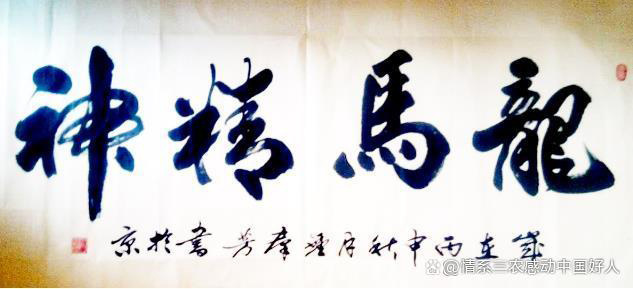 龍馬精神
歲在丙申秋月
羣芳書於京
情系三农感动中国好人